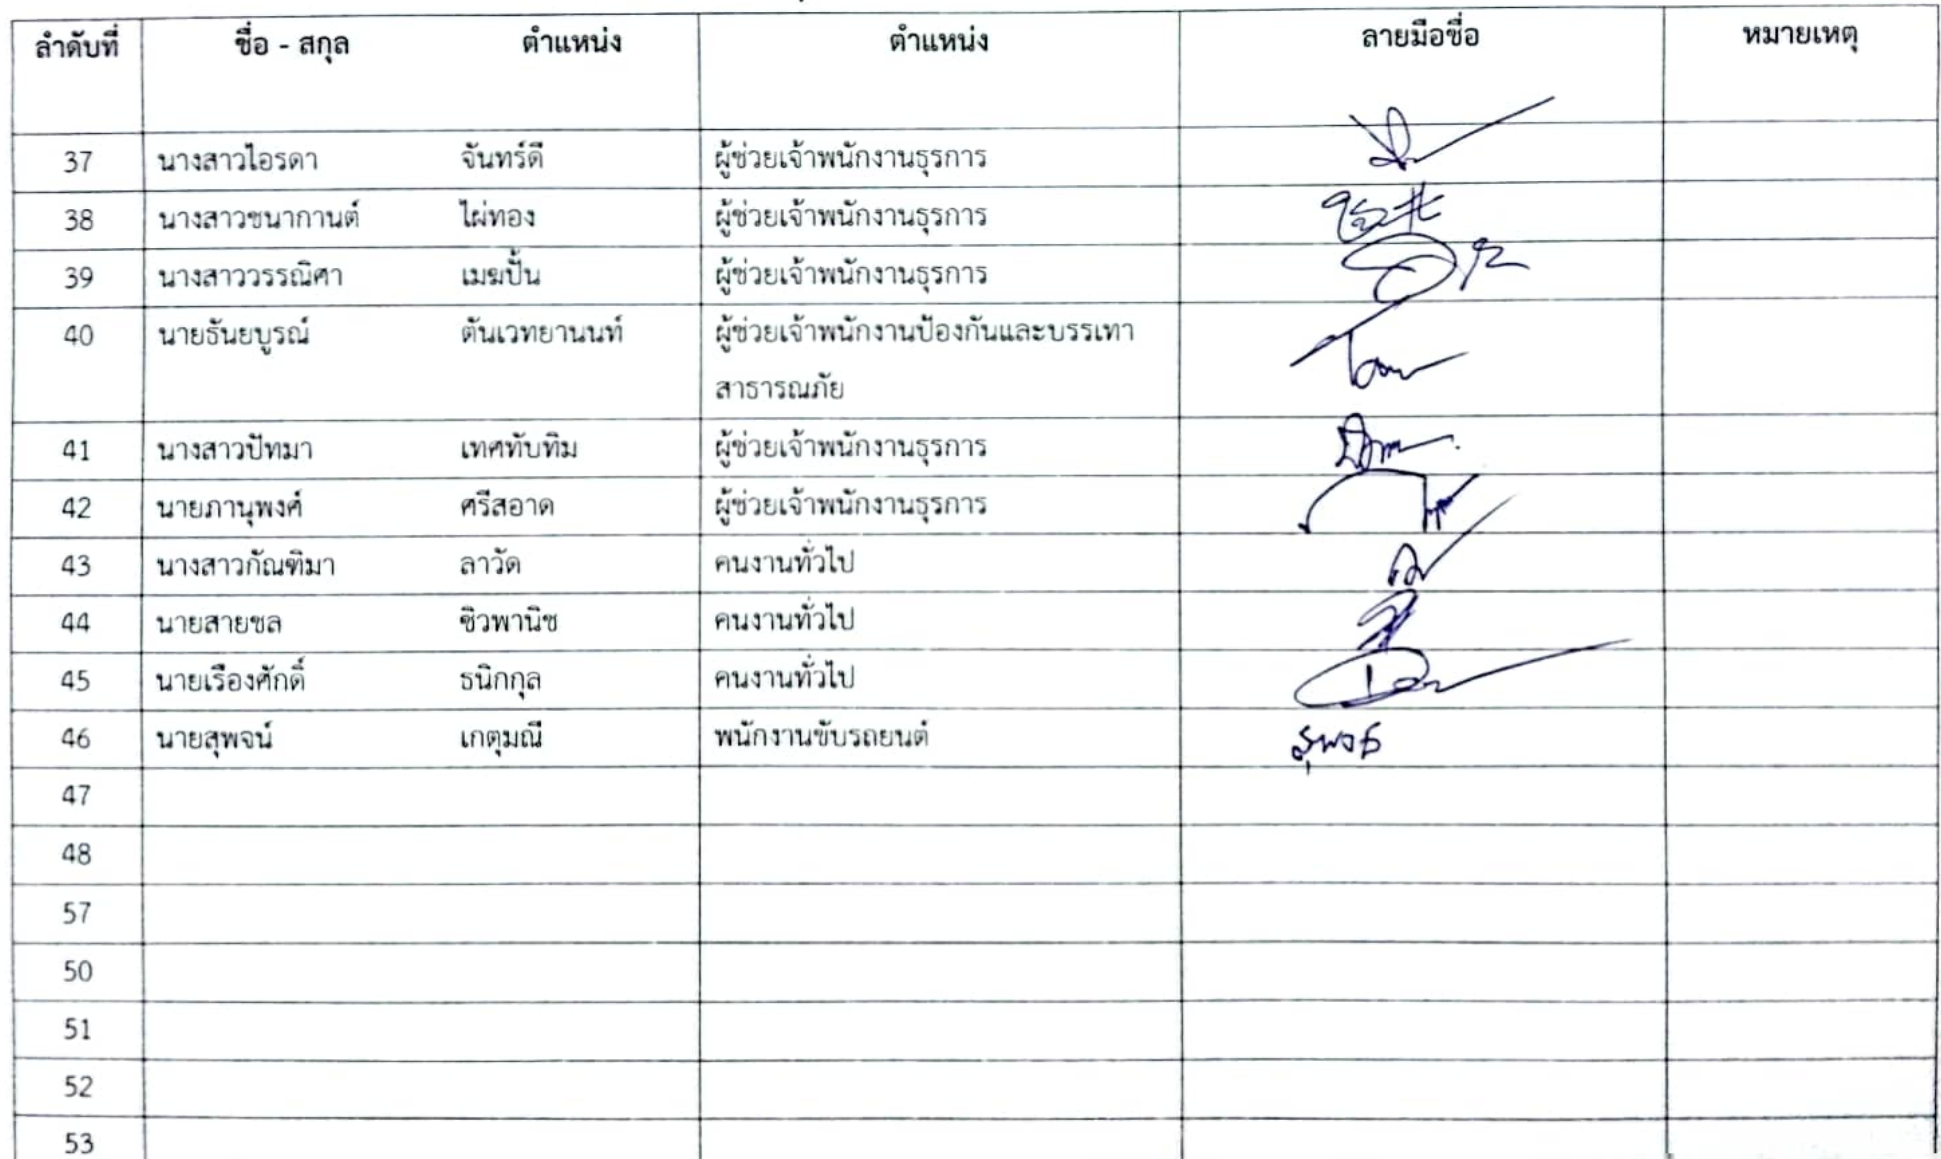 ลำดับที่ ชื่อ - สกุล ตำแหน่ง ตำแหน่ง ลายมือชื่อ หมายเหตุ
37 นางสาวไอรดา จันทร์ดี ผู้ช่วยเจ้าพนักงานธุรการ
38 นางสาวชนากานต์ ไผ่ทอง ผู้ช่วยเจ้าพนักงานธุรการ
39 นางสาววรรณิศา เมฆปั้น ผู้ช่วยเจ้าพนักงานธุรการ
40 นายธันยบูรณ์ ตันเวทยานนท์ ผู้ช่วยเจ้าพนักงานป้องกันและบรรเทา
สาธารณภัย
41 นางสาวปัทมา เทศทับทิม ผู้ช่วยเจ้าพนักงานธุรการ
42 นายภานุพงศ์ ศรีสอาด ผู้ช่วยเจ้าพนักงานธุรการ
43 นางสาวกัณฑิมา ลาวัด คนงานทั่วไป
44 นายสายชล ชิวพานิช คนงานทั่วไป
45 นายเรืองศักดิ์ ธนิกกุล คนงานทั่วไป
46 นายสุพจน์ เกตุมณี พนักงานขับรถยนต์
47
48
57
50
51
52
53